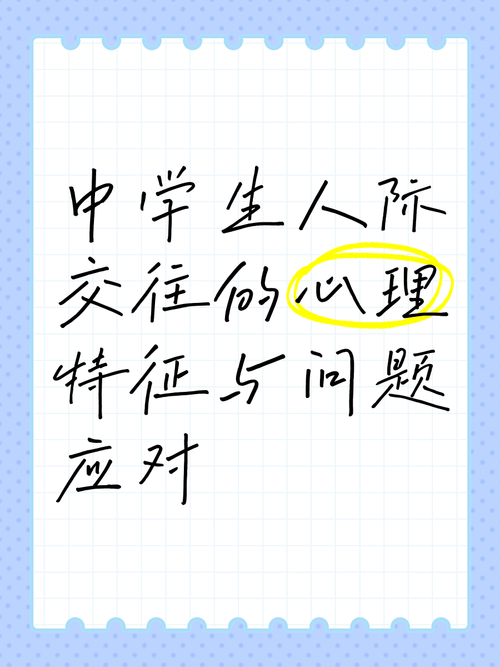 中学生人际
交往的心理
特征与问题
应对